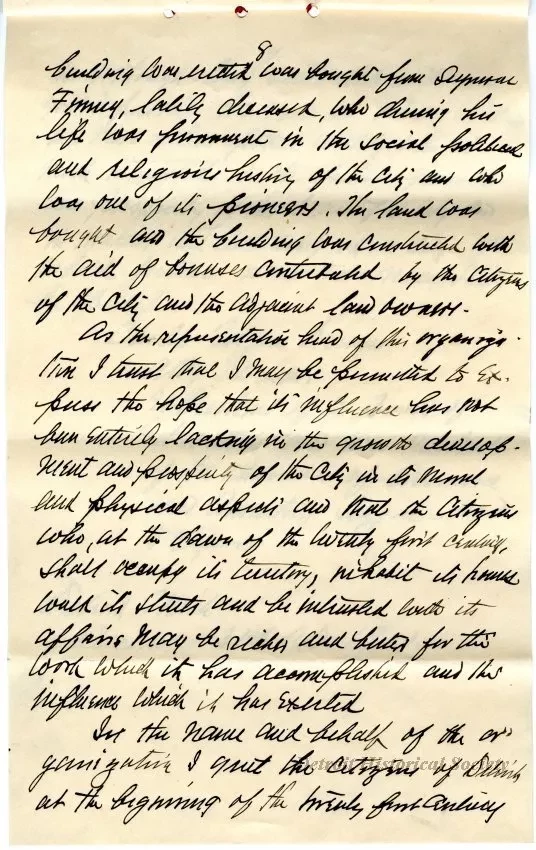 8
building was erected was bought from Seymour
Finney, lately deceased, who during his
life was prominent in the social political
and religious history of the city and who
was one of its pioneers. The land was
bought and the building was constructed with
the aid of bonuses contributed by the citizens
of the city and the adjacent land owners.
As the representative head of this organiza-
tion I trust that I may be permitted to ex-
press the hope that its influence has not
been entirely lacking in the growth develop-
ment and prosperity of the city in its moral
and physical aspects and that the citizens
who, at the dawn of the twenty first century,
shall occupy its territory, inhabit its homes
walk its streets and be intrusted with its
affairs may be richer and better for the
work which it has accomplished and the
influence which it has exerted
In the name and behalf of the or-
ganization I greet the citizens of Detroit
at the beginning of the twenty first century
Detroit Historical Society